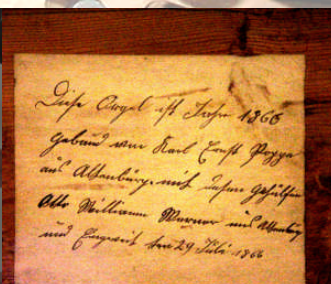 Diese Orgel ist Jahr 1866
gebaud von Karl Ernst Poppe
aus Altenburg mit dessen Gehülfen
Otto Willianm Werner aus Altenburg
und Eingweit den 29 Juli 1866